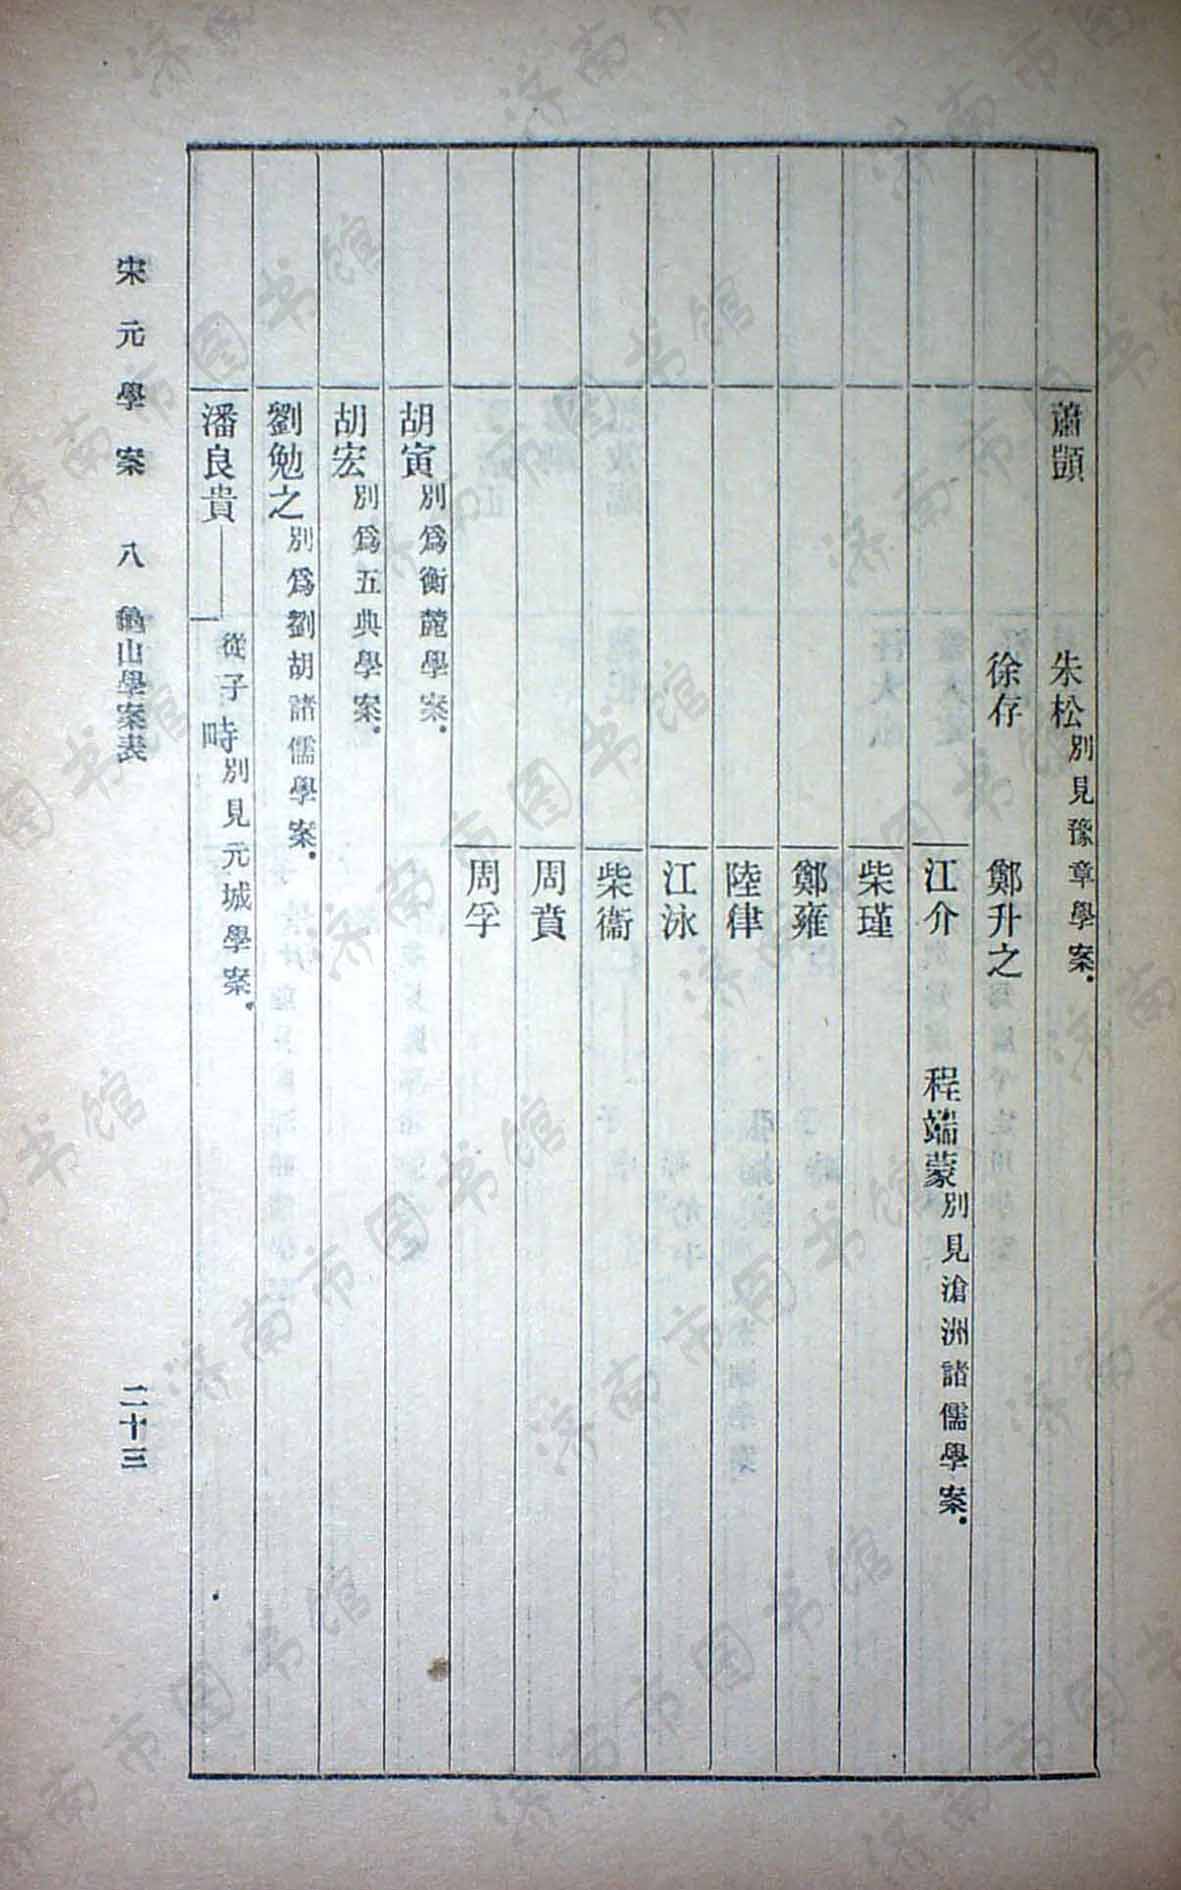 蕭顗 朱松別見豫章學案.
徐存 鄭升之
江介 程端蒙別見滄洲諸儒學案.
柴瑾
鄭雍
陸律
江泳
柴衞
周賁
周孚
胡寅別爲衡麓學案.
胡宏別爲五典學案.
劉勉之別爲劉胡諸儒學案.
潘良貴 從子畤別見元城學案.
宋元學案 八 龜山學案表 二十三
济南市图书馆